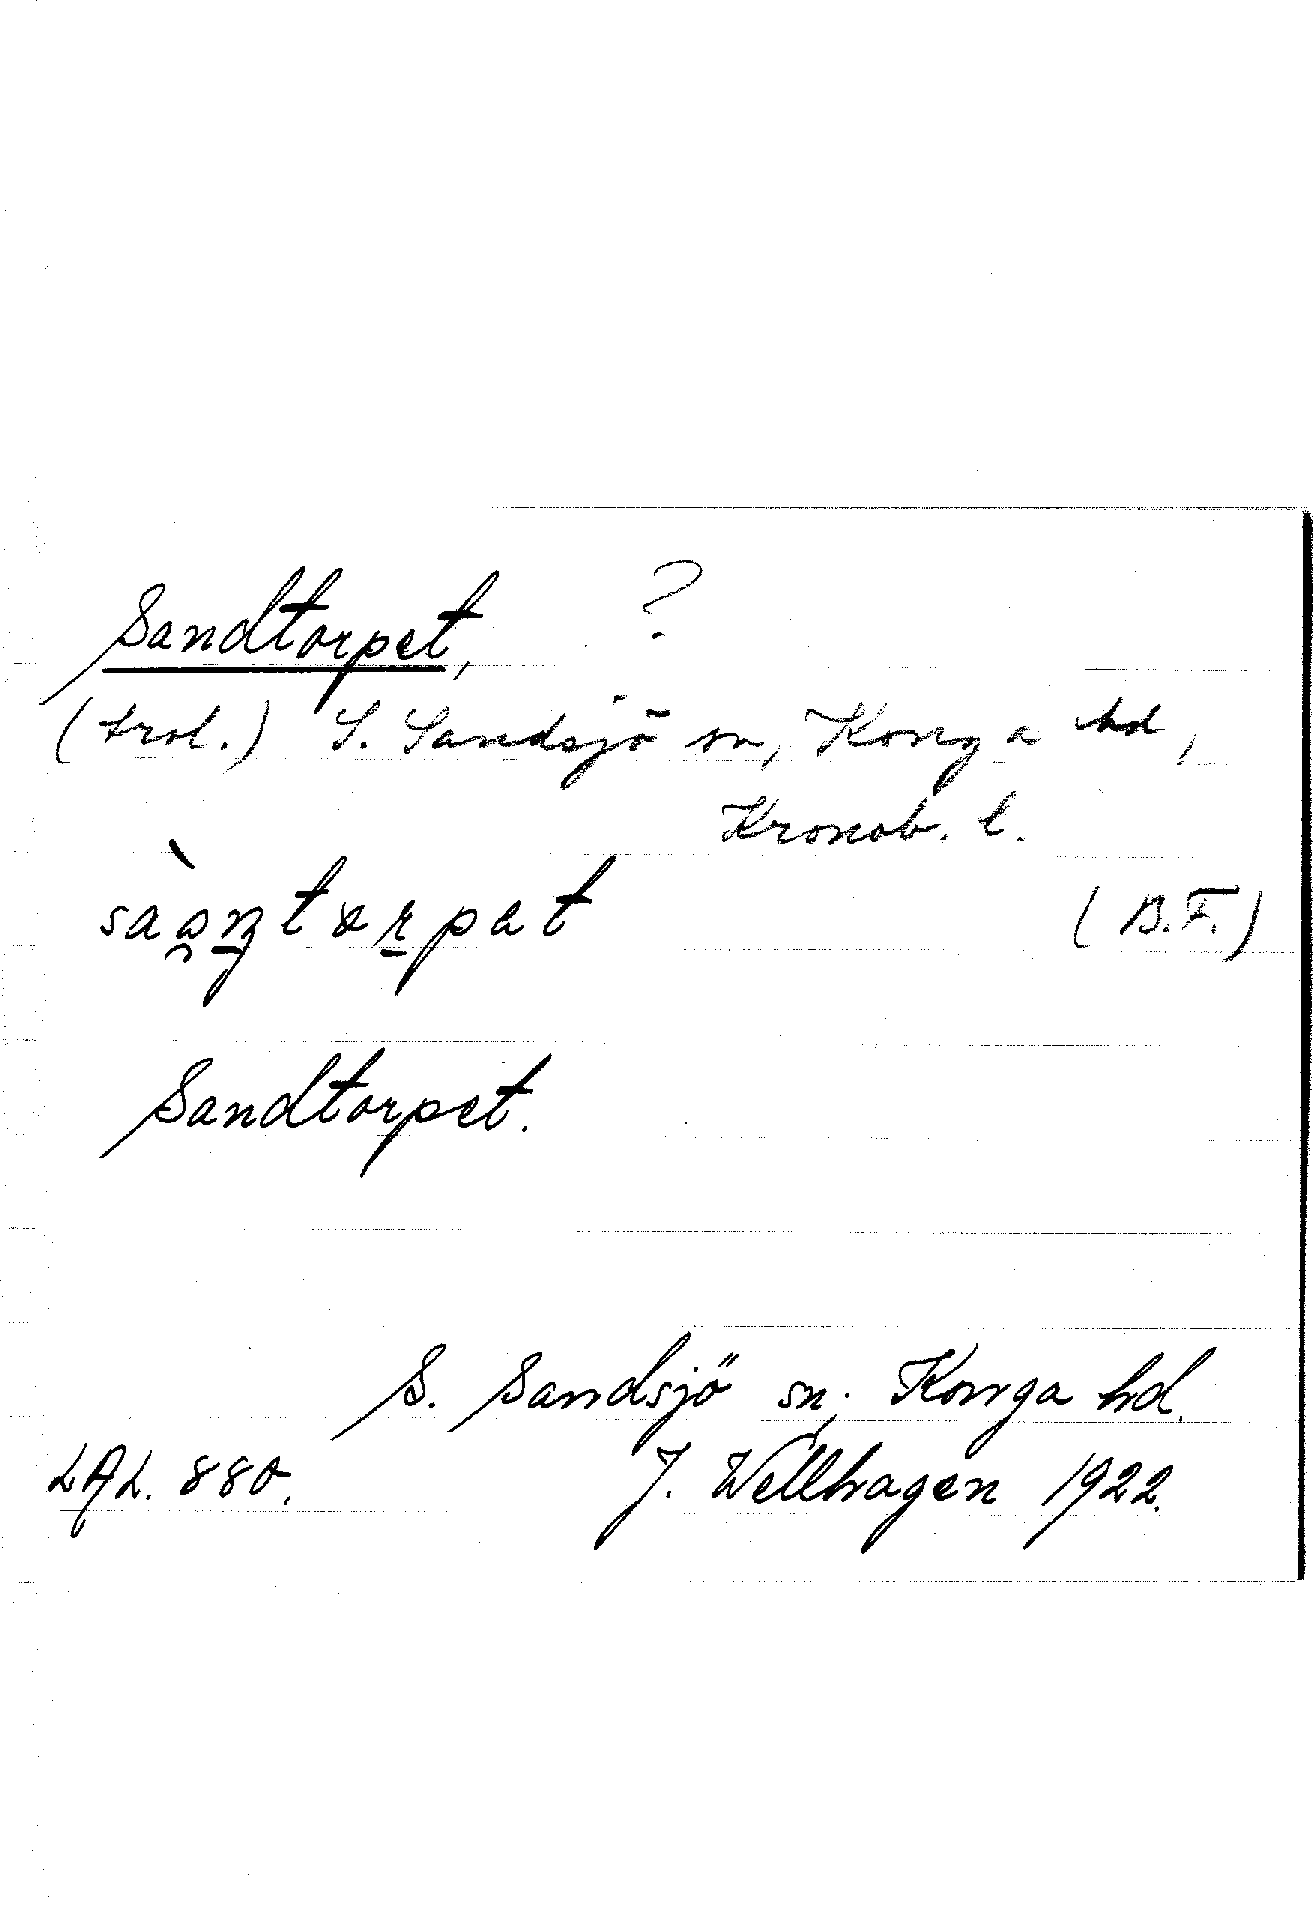 Sandtorpet, ?
(trol.) S. Sandsjö sn, Konga hd,
Kronob. l.
(B.F.)
Sandtorpet.
S. Sandsjö sn, Konga hd.
LAL. 880. J. Wellhagen 1922.